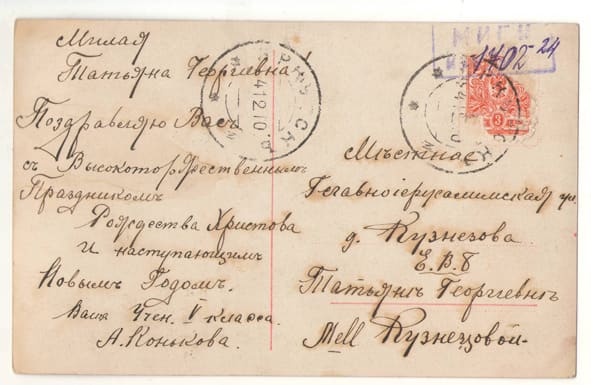 Милая
Татьяна Георгиевна
Поздравляю Васъ
съ Высокоторжественнымъ
Праздникомъ
Рождества Христова
и наступающимъ
Новымъ Годомъ.
Ваша Учен. V класса.
А. Конькова.
1702-24
3
Мѣстная
ул.
д. Кузнезова
Е. В. Б
Татьянѣ Георгиевнѣ
Mell Кузнецовой.